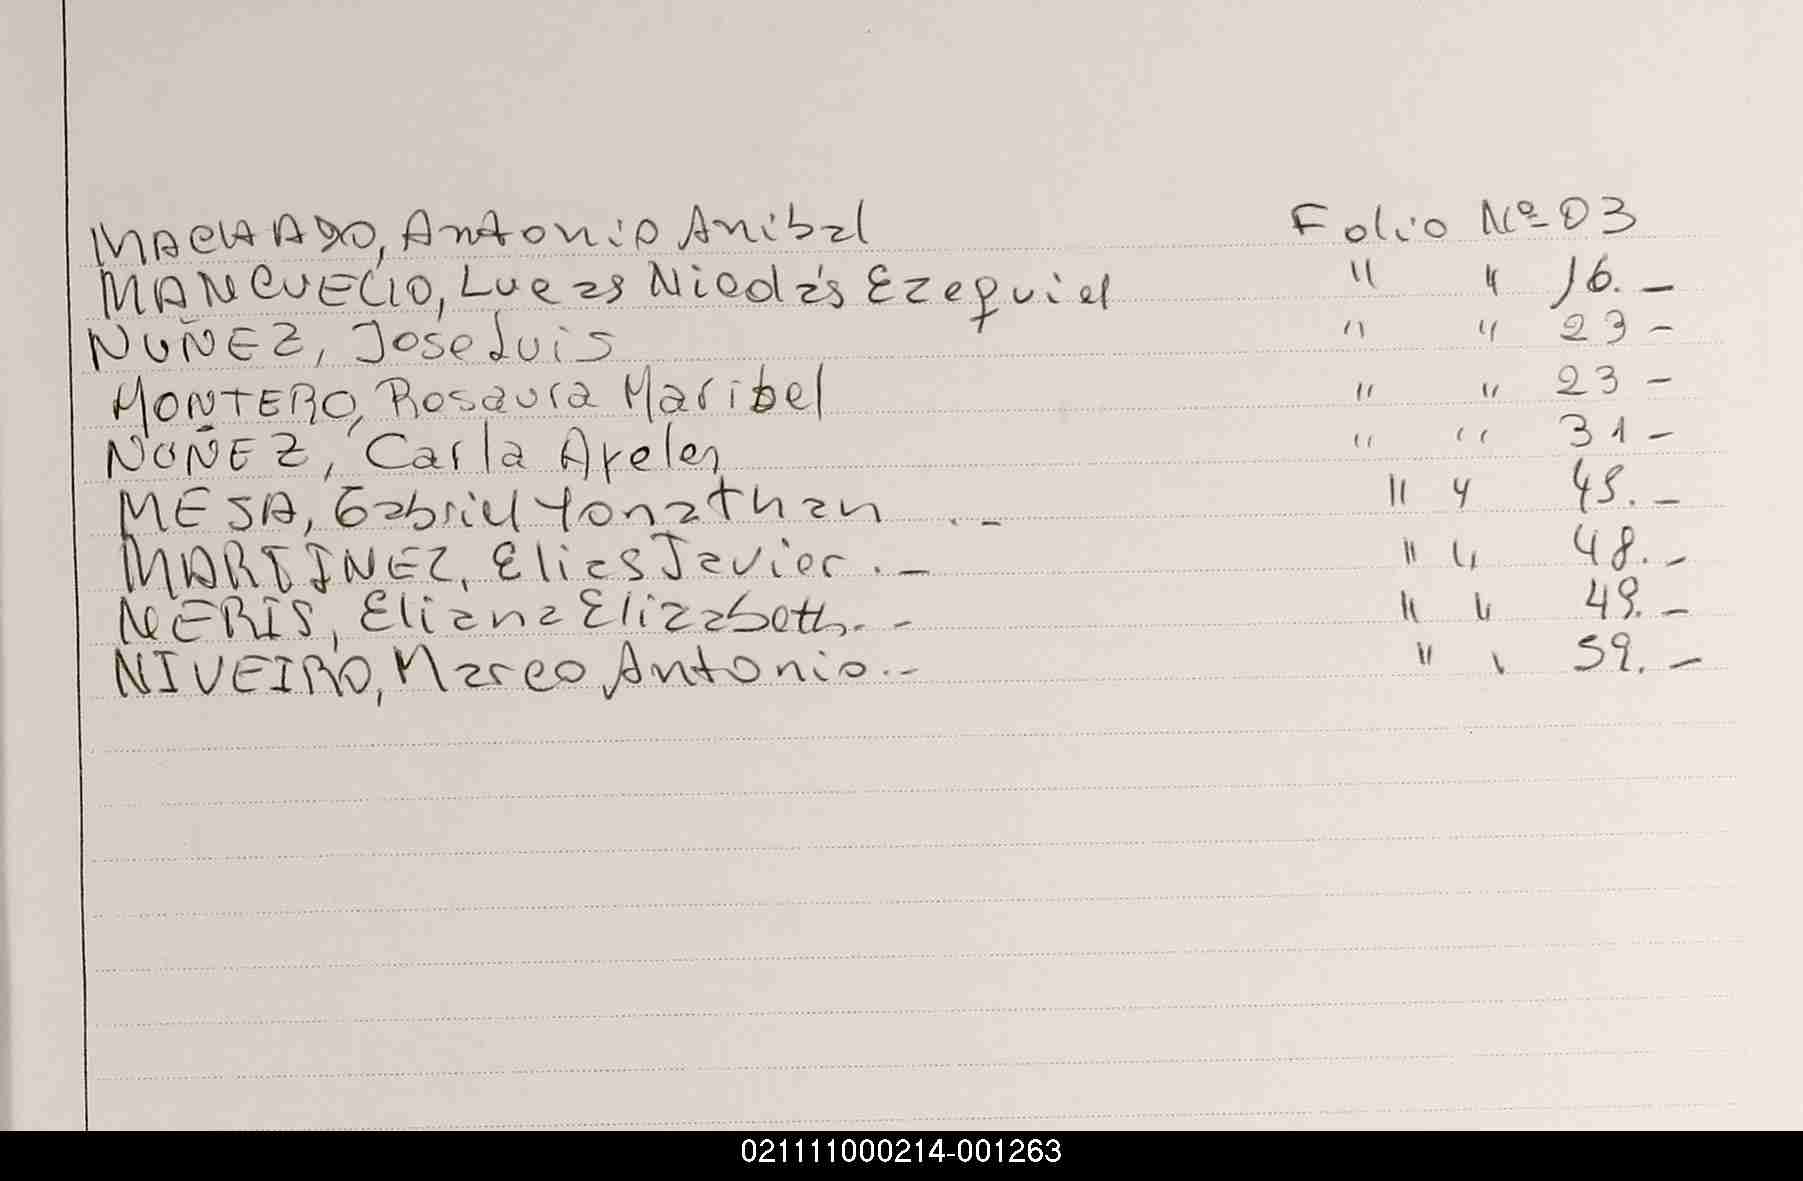 MACHADO, Antonio Anibal Folio Nº 03
MANCUELLO, Lucas Nicolás Ezequiel " " 16.-
NUÑEZ, Jose Luis " " 23-
MONTERO, Rosaura Maribel " " 23-
NUÑEZ, Carla Ayelen " " 31-
MESA, Gabriel Yonathan .- " " 45.-
MARTINEZ, Elias Javier.- " " 48.-
NERIS, Eliana Elizabeth.- " " 49.-
NIVEIRO, Marco Antonio.- " " 59.-
021111000214-001263